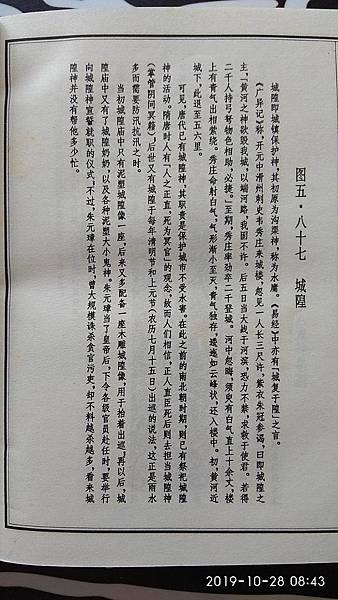 图五·八十七 城隍
城隍即城镇保护神，其初原为沟渠神，称为水庸。《易经》中亦有「城复于隍」之言。
《广异记》称，开元中滑州刺史韦秀庄来城楼，忽见一人长三尺许，紫衣朱冠参谒，曰即城隍之
主，「黄河之神欲毁我城，以端河路，我固不许。后五日当大战于河滨，恐力不禁，求救于使君。若得
二千人持弓弩物色相助，必捷。」至期，秀庄率劲卒二千登城。河中忽晦，须臾有白气直上十余丈，楼
上有青气出相萦绕。秀庄命射白气，气形渐小至灭，青气独存，逶迤如云峰状，还入楼中。初，黄河近
城下，此退至五六里。
可见，唐代已有城隍神，其职责是保护城市不受水害。在此之前的南北朝时期，则已有祭祀城隍
神的活动。隋唐时人有「人之正直，死为冥官」的观念，故而人们相信，正人直臣死后则去担当城隍神
（掌管阴间冥籍）。后世又有城隍于每年清明节和上元节（农历七月十五日）出巡的说法，这正是雨水
多而需要防汛抗汛之时。
当初城隍庙中只有泥塑城隍像一座，后来又多配备一座木雕城隍像，用于抬着出巡。再以后，城
隍庙中又有了城隍奶奶，以及各种泥塑大小鬼神。朱元璋当了皇帝后，下令各级官员赴任时，要举行
向城隍神宣誓就职的仪式。不过，朱元璋在位时，曾大规模诛杀贪官污吏，却不料越杀越多，看来城
隍神并没有帮他多少忙。
2019-10-28 08:43